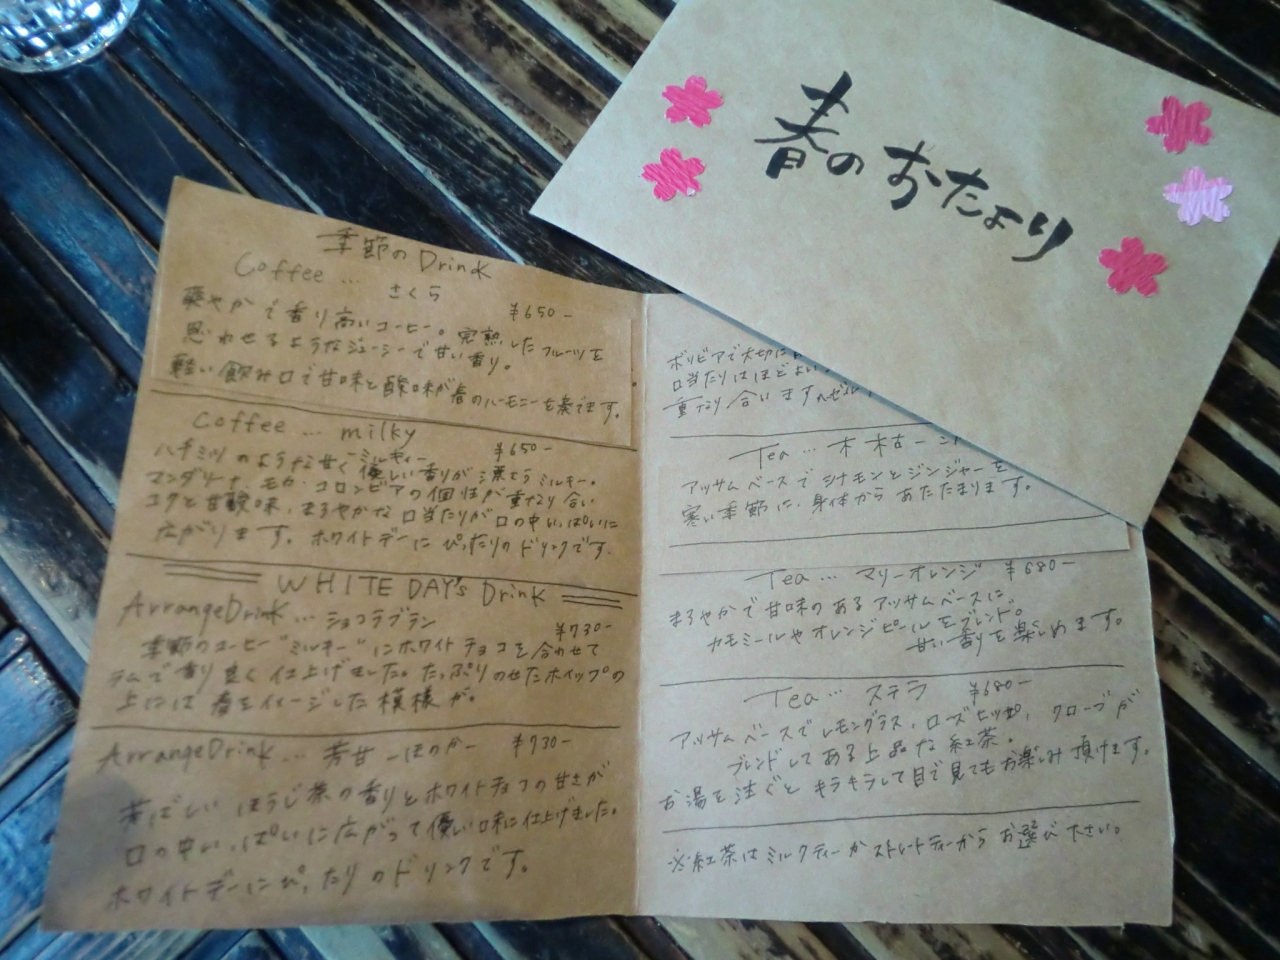 春のおたより
季節のDrink
Coffee... さくら
¥650-
爽やかで香り高いコーヒー。完熟したフルーツを
思わせるようなジューシーで甘い香り。
軽い飲み口で甘味と酸味が春のハーモニーを奏でます。
Coffee... milky
ミルキー ¥650-
ハチミツのような甘く優しい香りが漂うミルキー。
マンダリン、モカ、コロンビアの個性が重なり合い
コクと甘酸味、まろやかな口当たりが口の中いっぱいに
広がります。ホワイトデーにぴったりのドリンクです。
WHITE DAY's Drink
ArrangeDrink... ショコラブラン
¥730-
季節のコーヒー"ミルキー"にホワイトチョコを合わせて
ラムで香り良く仕上げました。たっぷりのせたホイップの
上には春をイメージした模様が。
ArrangeDrink... 芳甘-ほのか- ¥730-
芳ばしいほうじ茶の香りとホワイトチョコの甘さが
口の中いっぱいに広がって優しい味に仕上げました。
ホワイトデーにぴったりのドリンクです。
ボリビアで大切に
口当たりはほどよい
重なり合います
Tea... 木枯-こ
アッサムベースでシナモンとジンジャーを
寒い季節に、身体からあたたまります。
Tea... マリーオレンジ ¥680-
まろやかで甘味のあるアッサムベースに、
カモミールやオレンジピールをブレンド。
甘い香りを楽しめます。
Tea... ステラ ¥680-
アッサムベースでレモングラス、ローズヒップ、クローブが
ブレンドしてある上品な紅茶。
お湯を注ぐとキラキラして目で見てもお楽しみ頂けます。
※紅茶はミルクティーかストレートティーからお選び下さい。